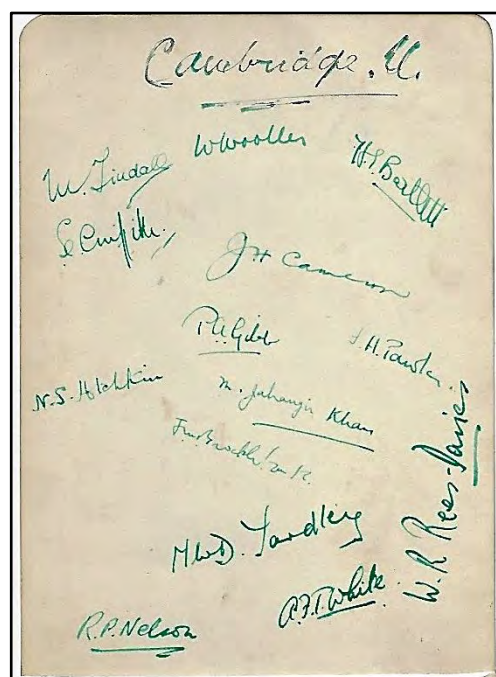 Cambridge. U.
M. Tindall
W Wooller
H.T. Bartlett
S.C. Griffith.
J H Cameron
P.A. Gibb
J.H. Pawle.
N.S. Hotchkin
M. Jahangir Khan
W. R Rees-Davies
N W D. Yardley
A.F.T. White
R.P. Nelson